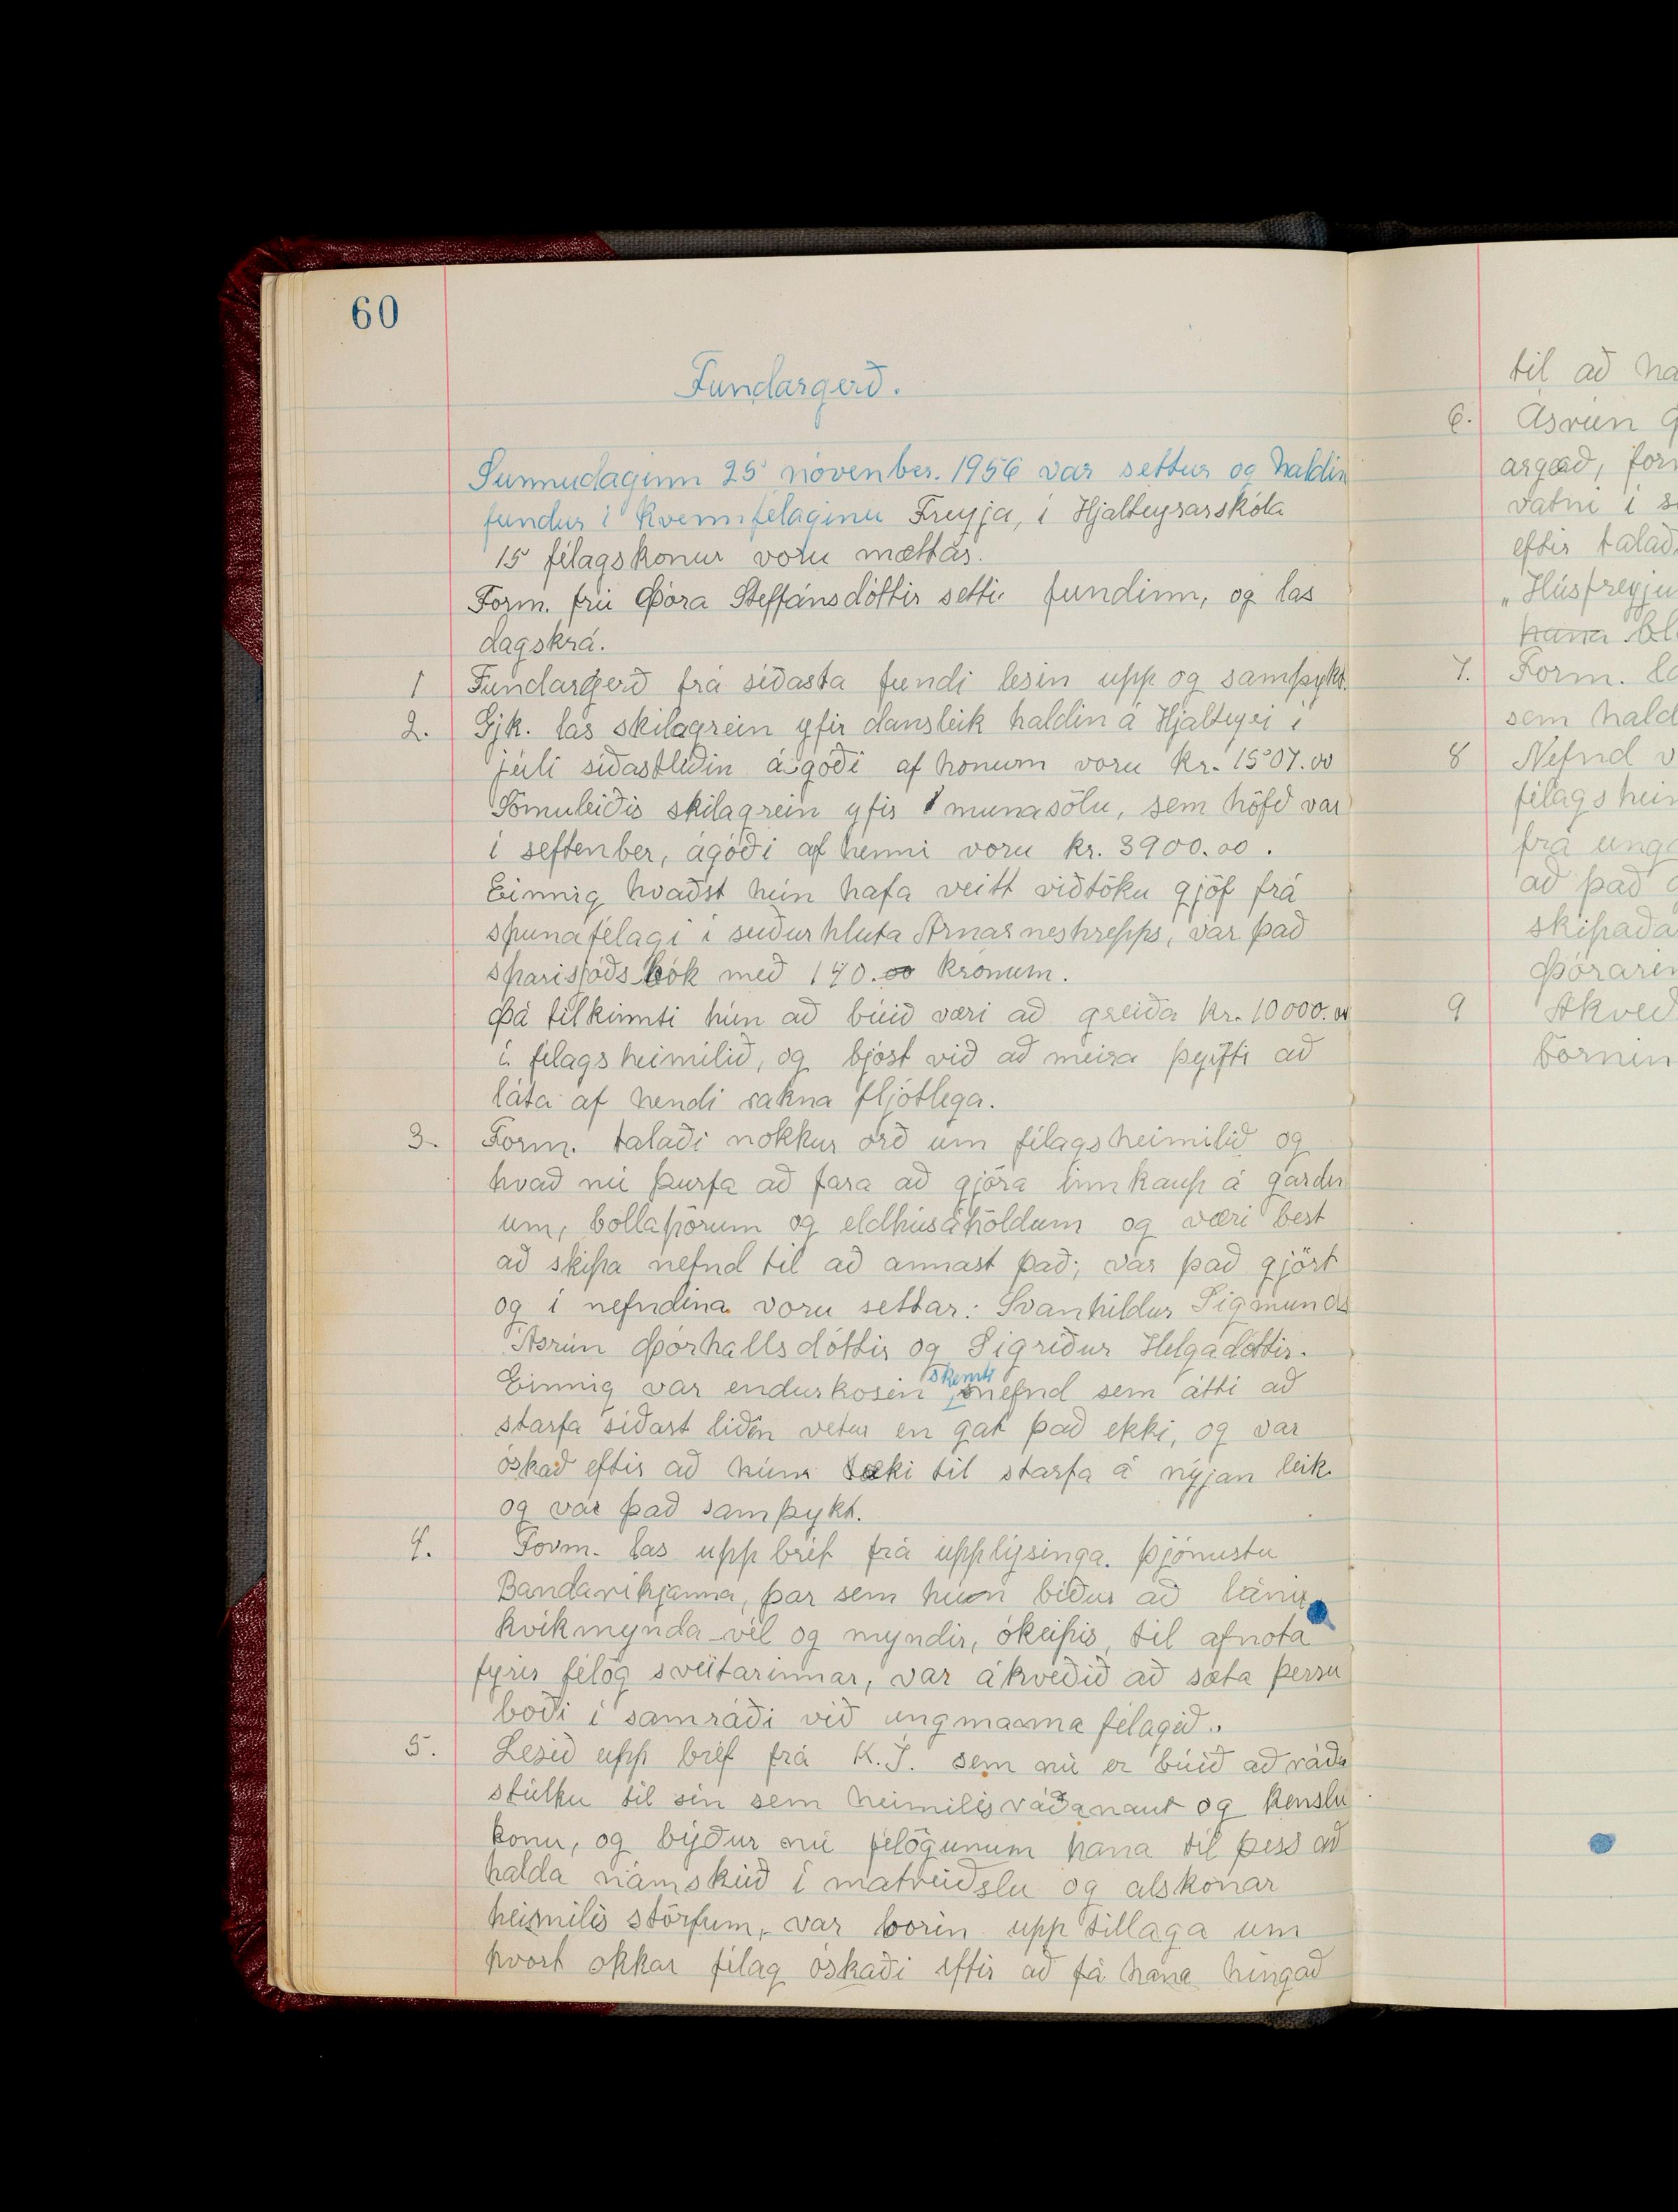 60
Fundargerð.
Sunnudaginn 25 novenber. 1956 var settur og haldin
fundur í kvennfélaginu Freyja, í Hjalteyrarskóla
15 félagskonur voru mættar.
Form. frú Þóra Steffánsdóttir setti fundinn, og las
dagskrá.
1 Fundargerð frá síðasta fundi lesin upp og samþykt.
2. Gjk. las skilagrein yfir dansleik haldin á Hjalteyri í
júlí síðastliðin ágóði af honum voru kr. 1507.00
Sömuleiðis skilagrein yfir munasölu, sem höfð var
í seftenber, ágóði af henni voru kr. 3900.00.
Einnig kvaðst hún hafa veitt viðtöku gjöf frá
spunafélagi í suðurhluta Arnarneshrepps, var það
sparisjóðsbók með 140.00 krónum.
Þá tilkinnti hún að búið væri að greiða kr. 10000.00
í félagsheimilið, og bjóst við að meira þyrfti að
láta af hendi rakna fljótlega.
3. Form. talaði nokkur orð um félagsheimilið og
hvað nú þurfa að fara að gjöra innkaup á gardin
um, bollapörum og eldhúsáhöldum og væri best
að skipa nefnd til að annast það; var það gjört
og í nefndina voru settar: Svanhildur Sigmunds
Ásrún Þórhallsdóttir og Sigríður Helgadóttir.
Einnig var endurkosin skemti nefnd sem átti að
starfa síðast liðin vetur en gat það ekki, og var
óskað eftir að hún tæki til starfa á nýjan leik.
og var það samþykt.
4. Form. las upp bréf frá upplýsinga. þjónustu
Bandaríkjanna, þar sem hún biður að lána
kvikmynda-vél og myndir, ókeipis, til afnota
fyrir félög sveitarinnar, var ákveðið að sæta þessu
boði í samráði við ungmanna félagið.
5. Lesið upp bréf frá K.S. sem nú er búið að ráða
stúlku til sín sem heimilisráðanaut og kenslu
konu, og býður nú félögunum hana til þess að
halda námskeið í matreiðslu og alskonar
heimilis störfum, var borin upp tillaga um
hvort okkar félag óskaði eftir að fá hana hingað
til að
6. Ásrún
vatni í
eftir talað
„Húsfreyju
7. Form.
sem hald
8 Nefnd
félagshei
frá unga
að það
skipaða
Þórarin
9 Akveð
börnin